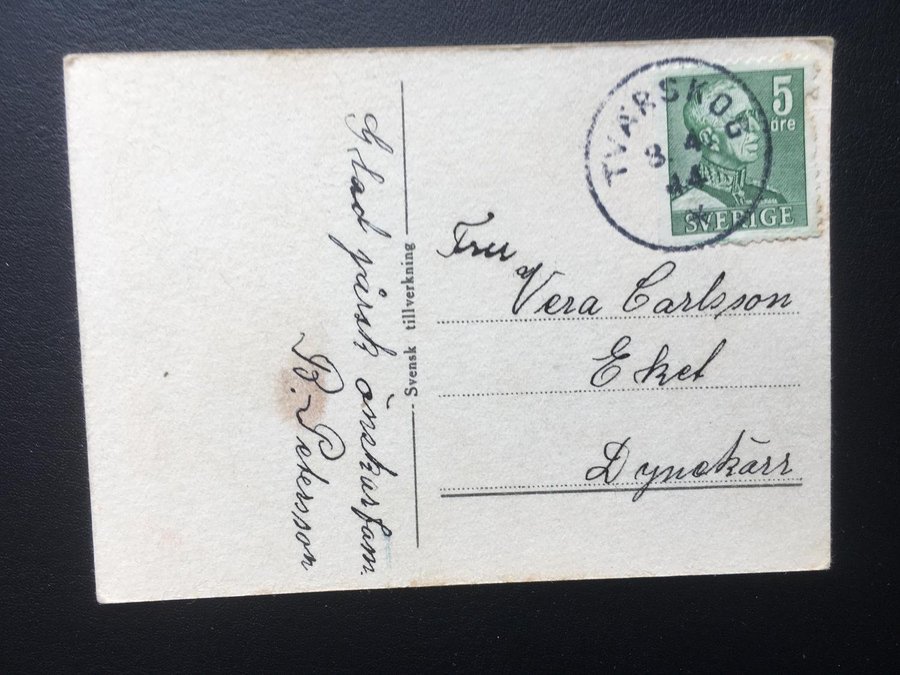 Glad pårsk önskar fam.
B. Petersson
Svensk tillverkning
TVÄRSKOG
3 4
44
5
öre
SVERIGE
Fru
Vera Carlsson
Eket
Dynekärr